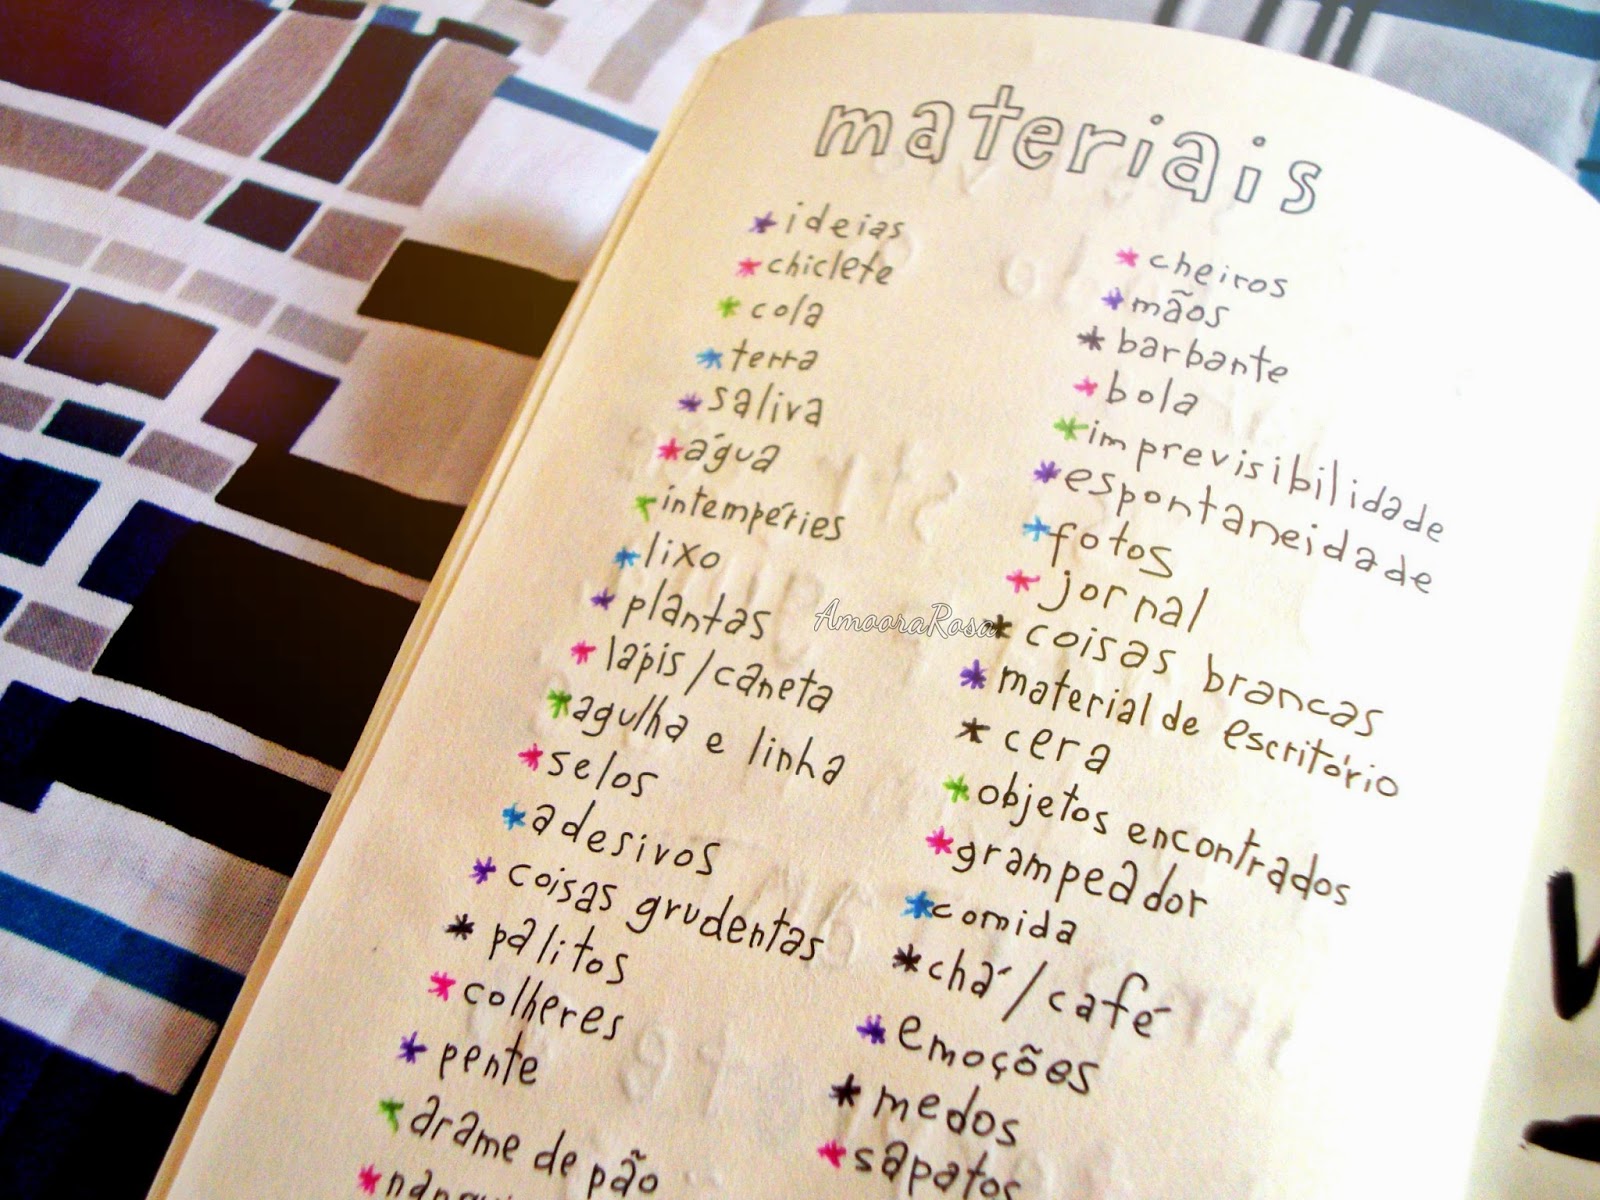 materiais
*ideias
*chiclete
*cola
*terra
*saliva
*água
*intempéries
*lixo
*plantas
*lápis/caneta
*agulha e linha
*selos
*adesivos
*coisas grudentas
*palitos
*colheres
*pente
*arame de pão
*cheiros
*mãos
*barbante
*bola
*imprevisibilidade
*espontaneidade
*fotos
*jornal
*coisas brancas
*material de escritório
*cera
*objetos encontrados
*grampeador
*comida
*chá/café
*emoções
*medos
*sapatos
AmooraRosa